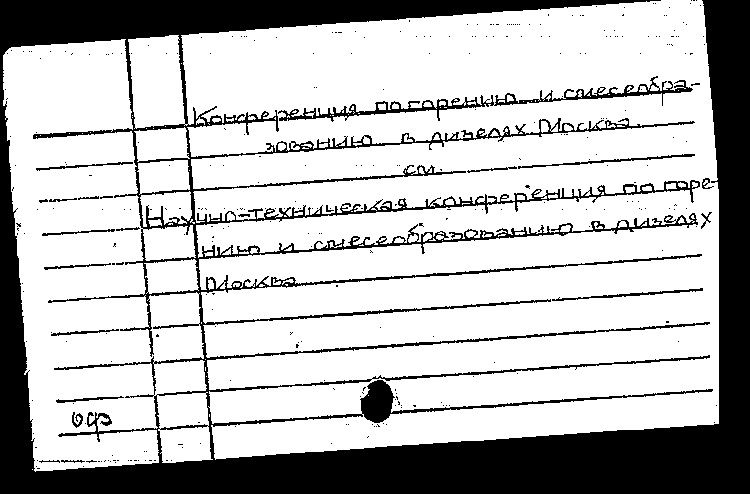 Конференция по горению и смесеобра-
зованию в дизелях Москва.
см.
Научно-техническая конференция по горе-
нию и смесеобразованию в дизелях
Москва
оф